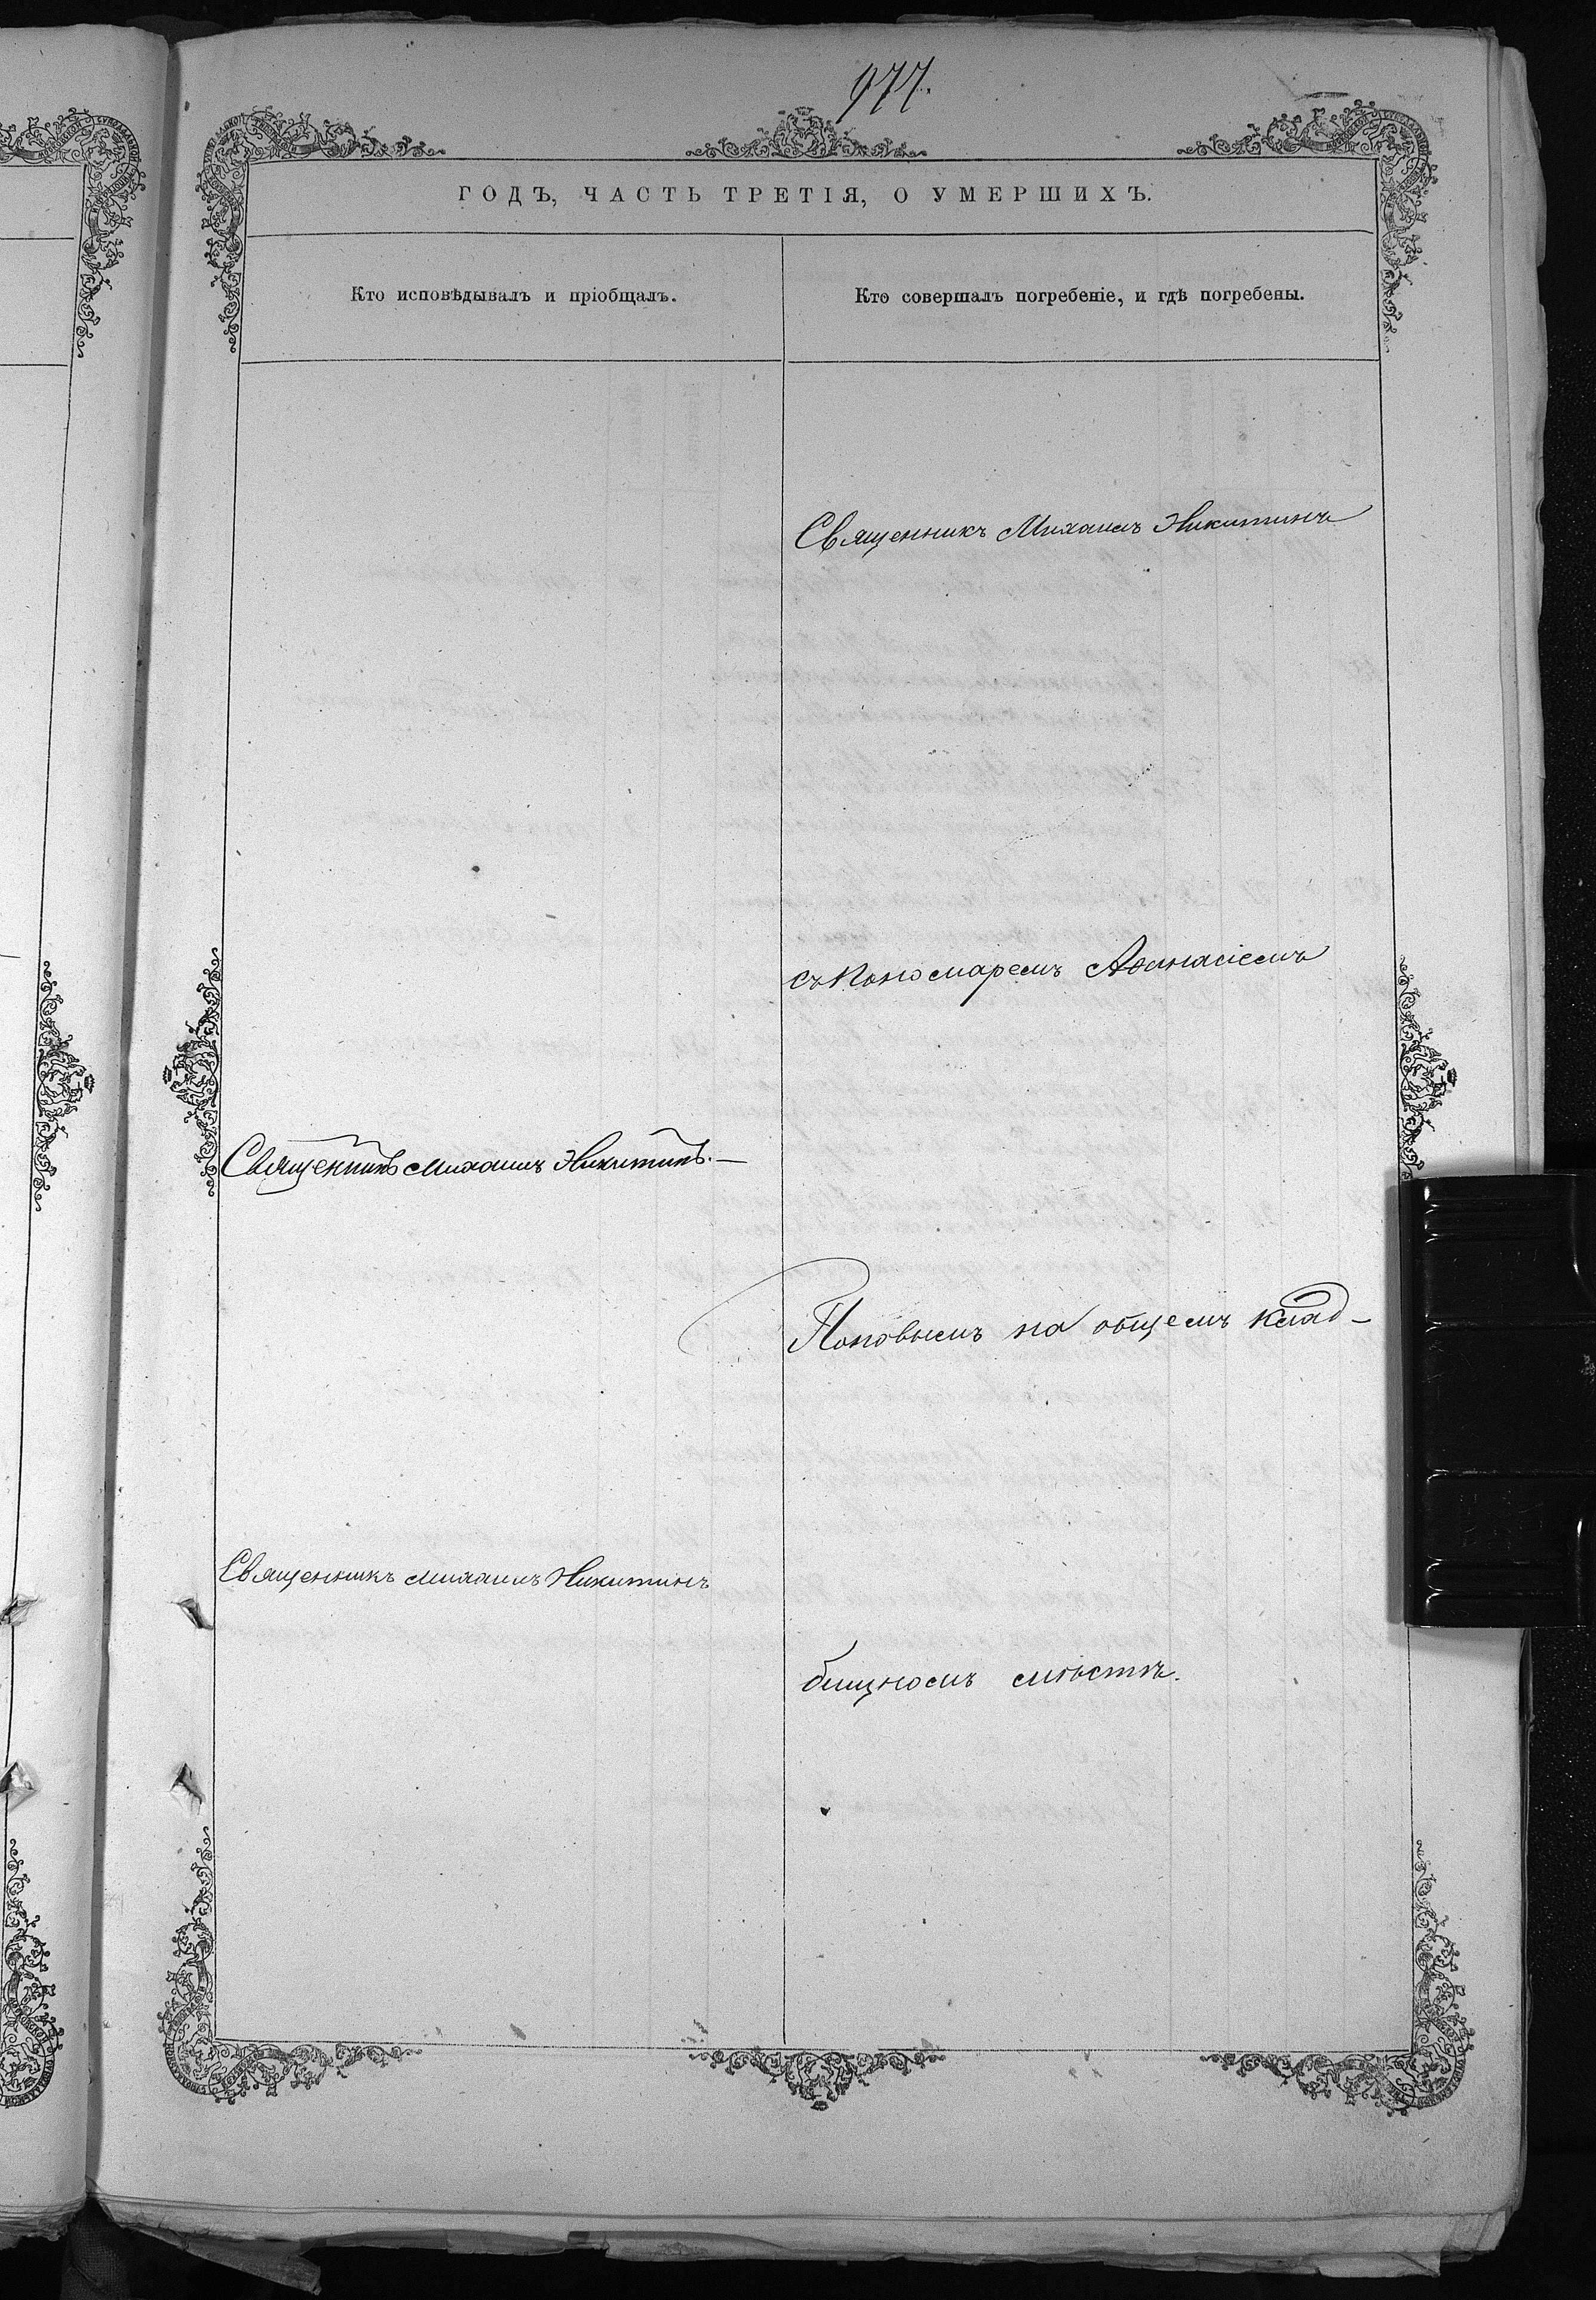 977.
ГОДЪ, ЧАСТЬ ТРЕТІЯ, О УМЕРШИХЪ.
Кто исповѣдывалъ и пріобщалъ.
Кто совершалъ погребеніе, и гдѣ погребены.
Священникъ Михаилъ Никитинъ
съ пономаремъ Аѳанасіемъ
Священникъ Михаилъ Никитинъ.—
Поповымъ на общемъ клад-
Священникъ Михаилъ Никитинъ
бищномъ мѣстѣ.